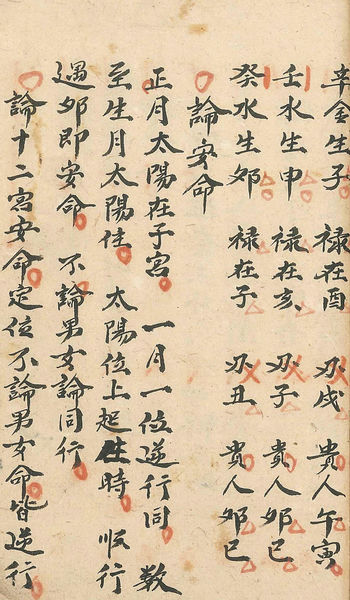 辛金生子 禄在酉 刃戌 貴人午寅
壬水生申 禄在亥 刃子 貴人夘巳
癸水生夘 禄在子 刃丑 貴人夘巳
論安命
正月太陽在子宮 一月一位逆行同 数
至生月太陽住 太陽位上起生時 順行
遇夘即安命 不論男女論同行
論十二宮安命定位不論男女命皆逆行